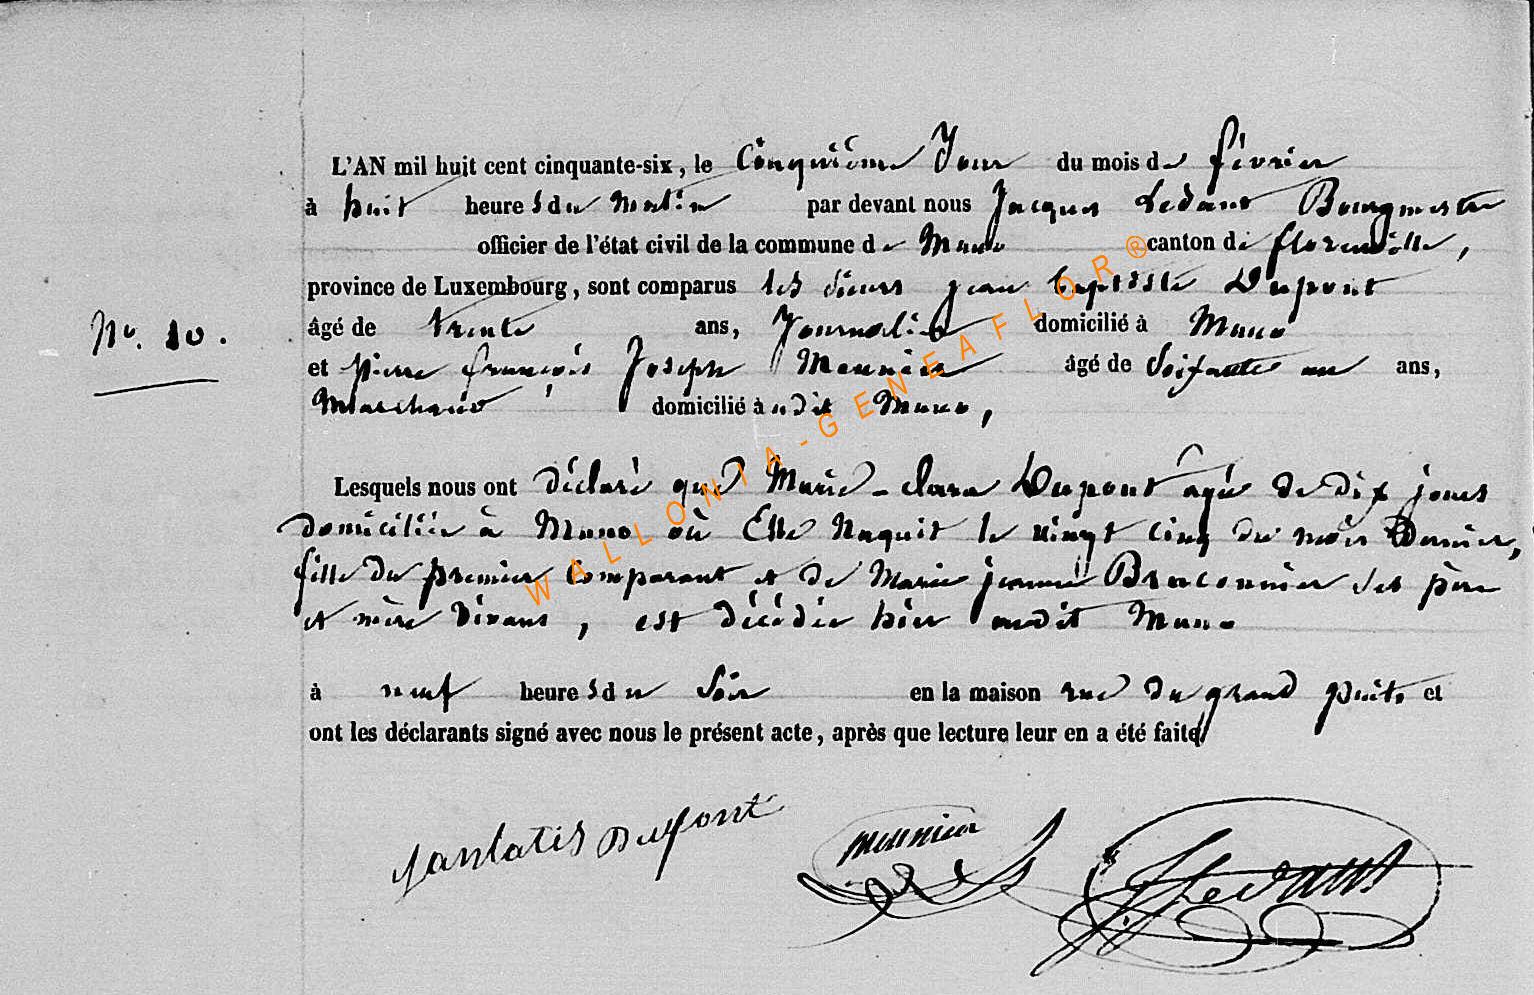 L'AN mil huit cent cinquante-six, le Cinquième Jour du mois de février
à huit heures du Matin par devant nous Jacques Ledant Bourgmestre
officier de l'état civil de la commune de Muno canton de florenville,
province de Luxembourg, sont comparus les sieurs jean baptiste Dupont
No. 10.
âgé de trente ans, Journalier domicilié à Muno
et pierre françois Joseph Meunier âgé de Soixante un ans,
Marchand domicilié à udit Muno,
Lesquels nous ont déclaré que Marie-Clara Dupont âgée de dix jours
domiciliée à Muno où Elle Naquit le vingt cinq du mois Dernier,
fille du premier Comparant et de Marie jeanne Braconnier ses père
et mère vivans, est décédée hier audit Muno
à neuf heures du Soir en la maison rue du grand puits et
ont les déclarants signé avec nous le présent acte, après que lecture leur en a été faite
Dupont meunier JLedant
WALLONIA-GENEAFLOR®